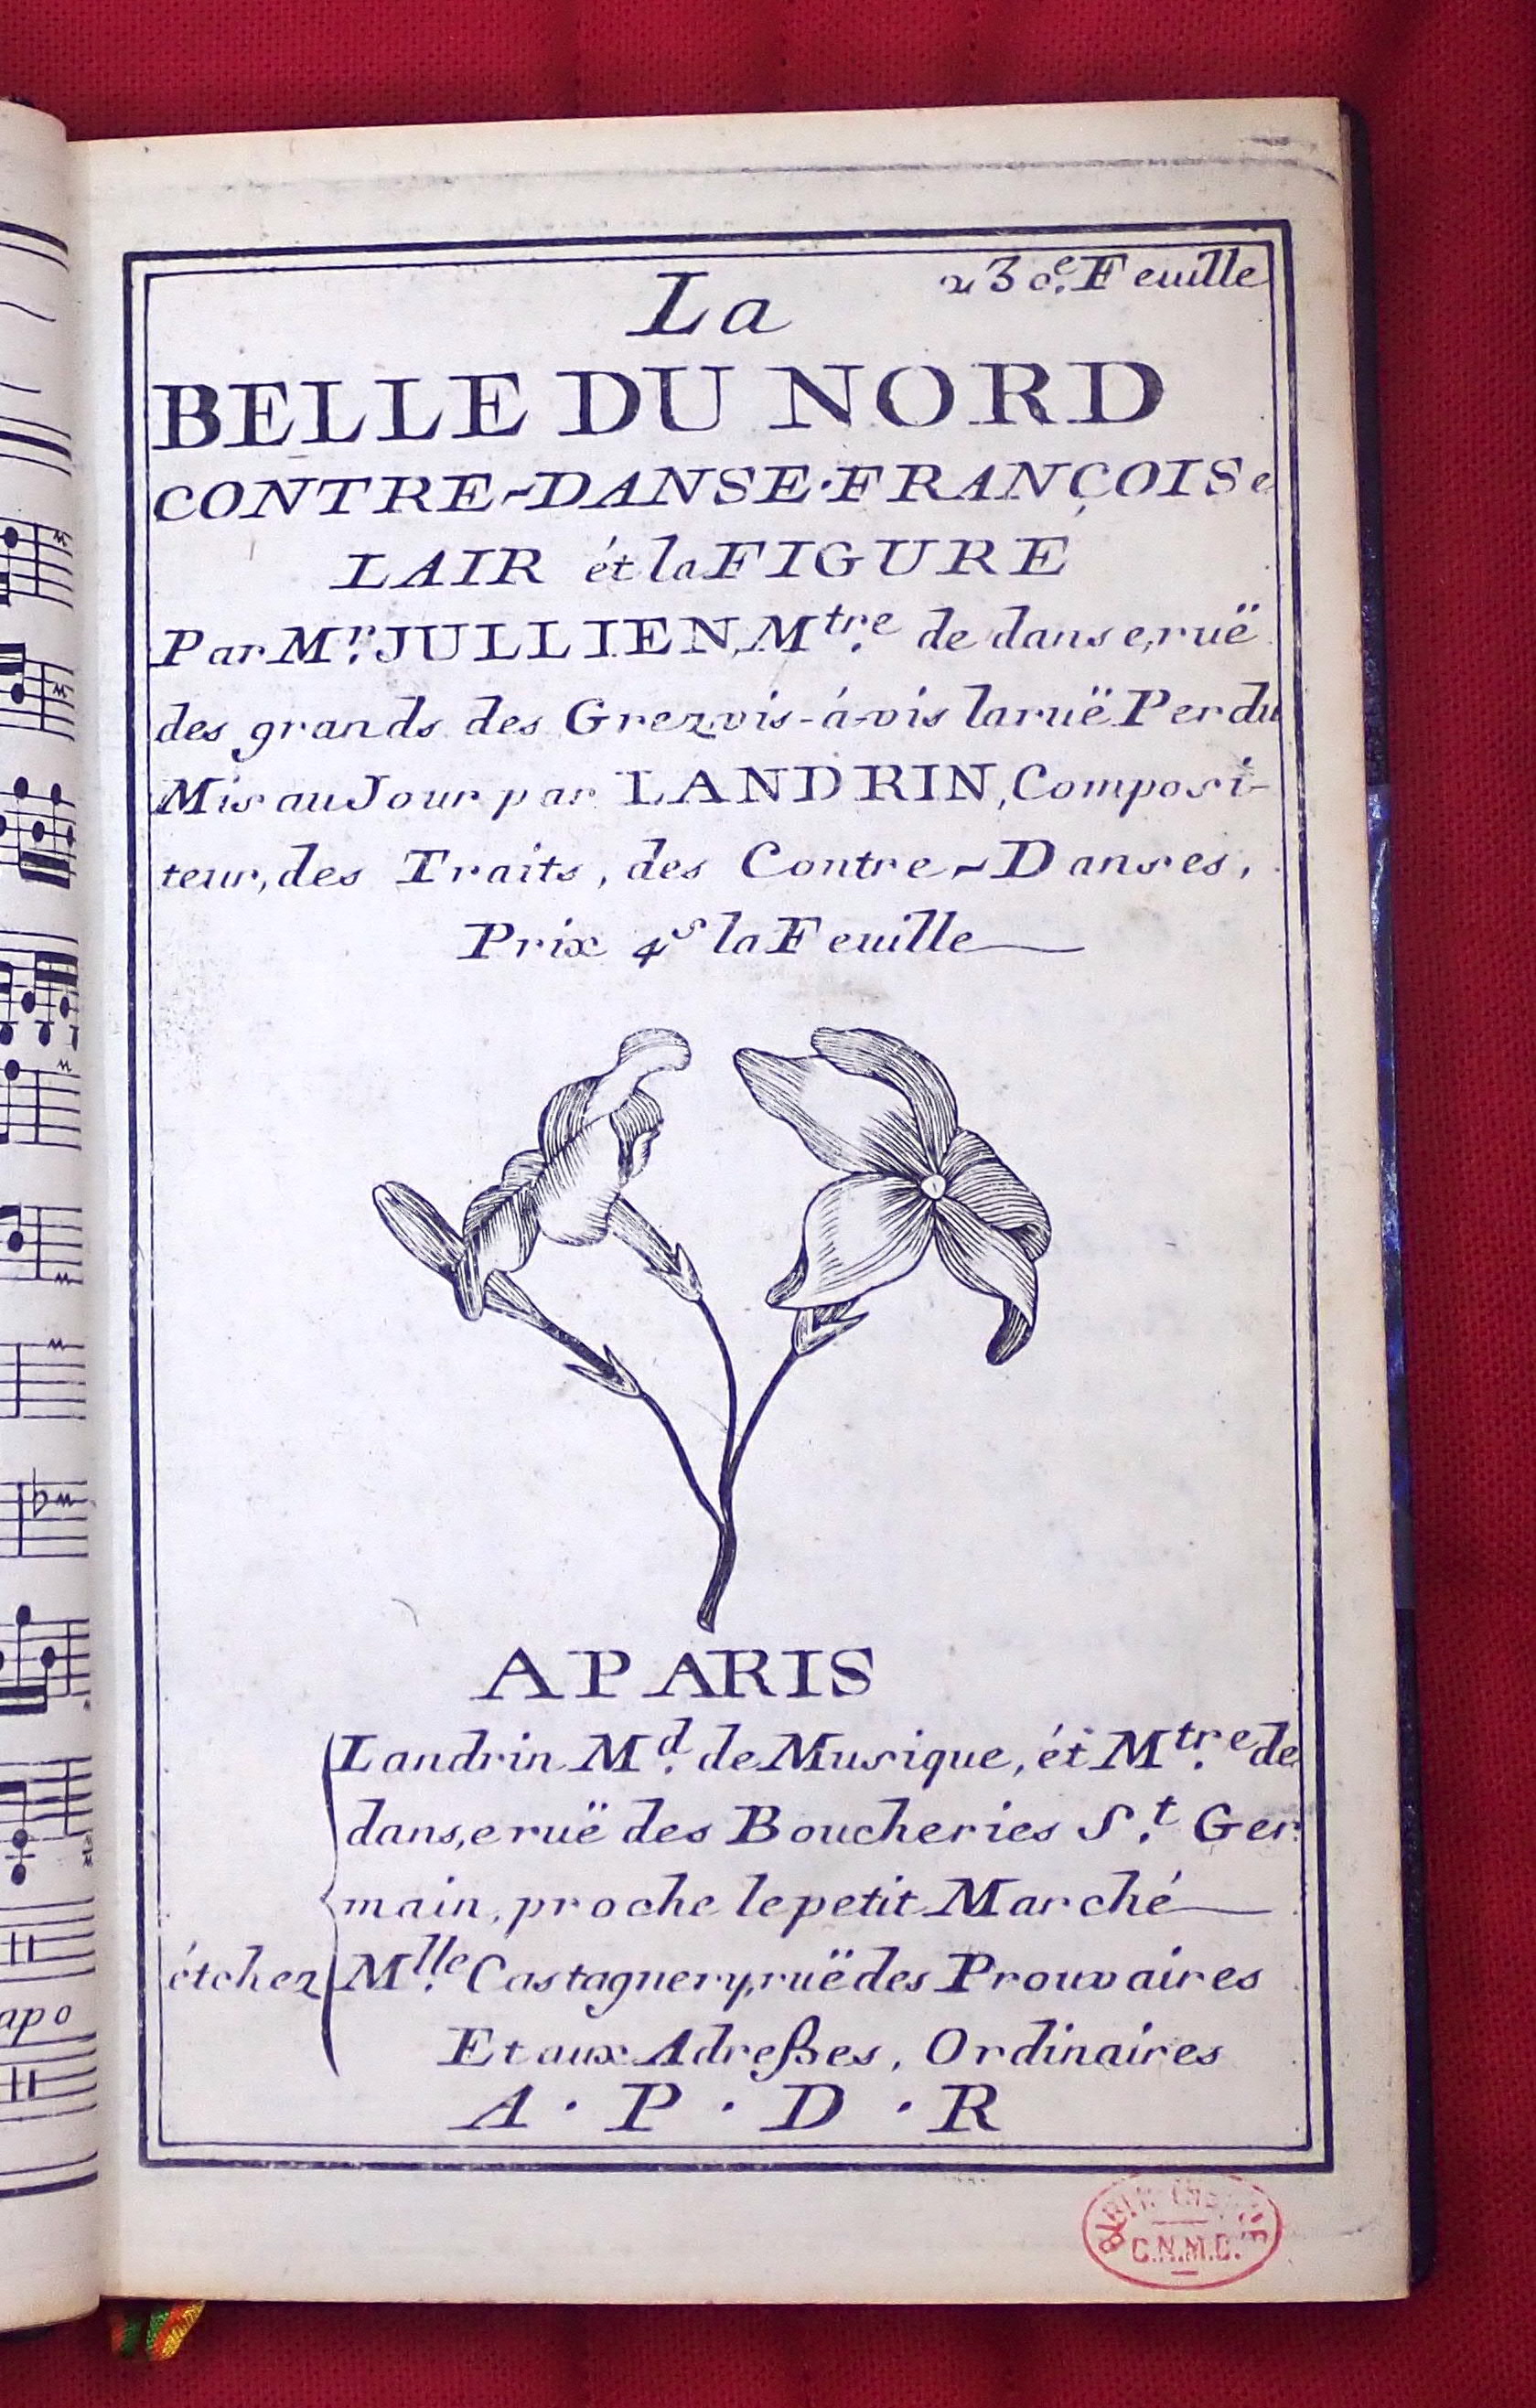 230.e Feuille
La
BELLE DU NORD
CONTRE-DANSE·FRANÇOISe
LAIR ét la FIGURE
Par M.r JULLIEN, M.tre de danse, ruë
des grands des Grez vis-à-vis la ruë Perdu
Mis au Jour par LANDRIN, Composi-
teur, des Traits, des Contre-Danses,
Prix 4s la Feuille
A PARIS
Landrin M.d de Musique, ét M.tre de
dans,e ruë des Boucheries S.t Ger
main, proche le petit Marché
ét chez M.lle Castagnery, ruë des Prouvaires
Et aux Adreßes, Ordinaires
A · P · D · R
BIBLIOTHÈQUE
C.N.M.D.
apo